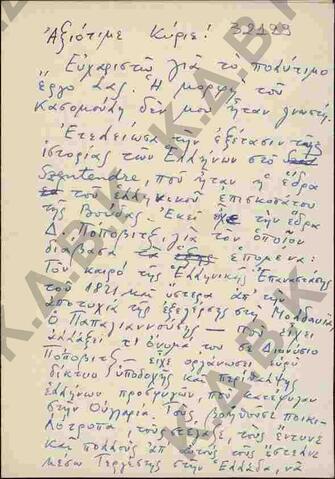 32129
Ἀξιότιμε Κύριε!
Εὐχαριστῶ γιὰ τὸ πολύτιμο
ἔργο Σας. Ἡ μορφὴ τοῦ
Κασομούλη δὲν μοῦ ἦταν γνωστή.
Ἐτελείωσα τὴν ἐξέτασιν τῆς
ἱστορίας τῶν Ἑλλήνων στὸ
Szentendre, ποὺ ἦταν ἡ ἕδρα
τοῦ ἑλληνικοῦ ἐπισκοπάτου
τῆς Βούδας. Ἐκεῖ τὴν ἕδρα
Δ. Ποποβιτς, γιὰ τὸν ὁποῖον
διάβασα τὰ ἑπόμενα:
Τὸν καιρὸ τῆς Ἑλληνικῆς Ἐπαναστάσης
τοῦ 1821 καὶ ὕστερα ἀπ' τὴν
ἀποτυχία τῆς ἐξέγερσης στὴ Μολδαυία
ὁ Παπαγιαννούσης — ποὺ εἶχε
ἀλλάξει τ' ὄνομά του σὲ Διονύσιο
Ποποβιτς — εἶχε ὀργανώσει εὐρὺ
δίκτυο ὑποδοχῆς καὶ περίθαλψης
ἑλλήνων προσφύγων, ποὺ κατέφυγαν
στὴν Οὑγγαρία. Τοὺς βοηθοῦσε ποικι-
λότροπα, τοὺς στέγαζε, τοὺς ἔντυνε
καὶ πολλοὺς ἀπ' αὐτοὺς τοὺς ἔστελνε
μέσω Τεργέστης στὴν Ἑλλάδα, νὰ
Κ.Δ.Β.Κ